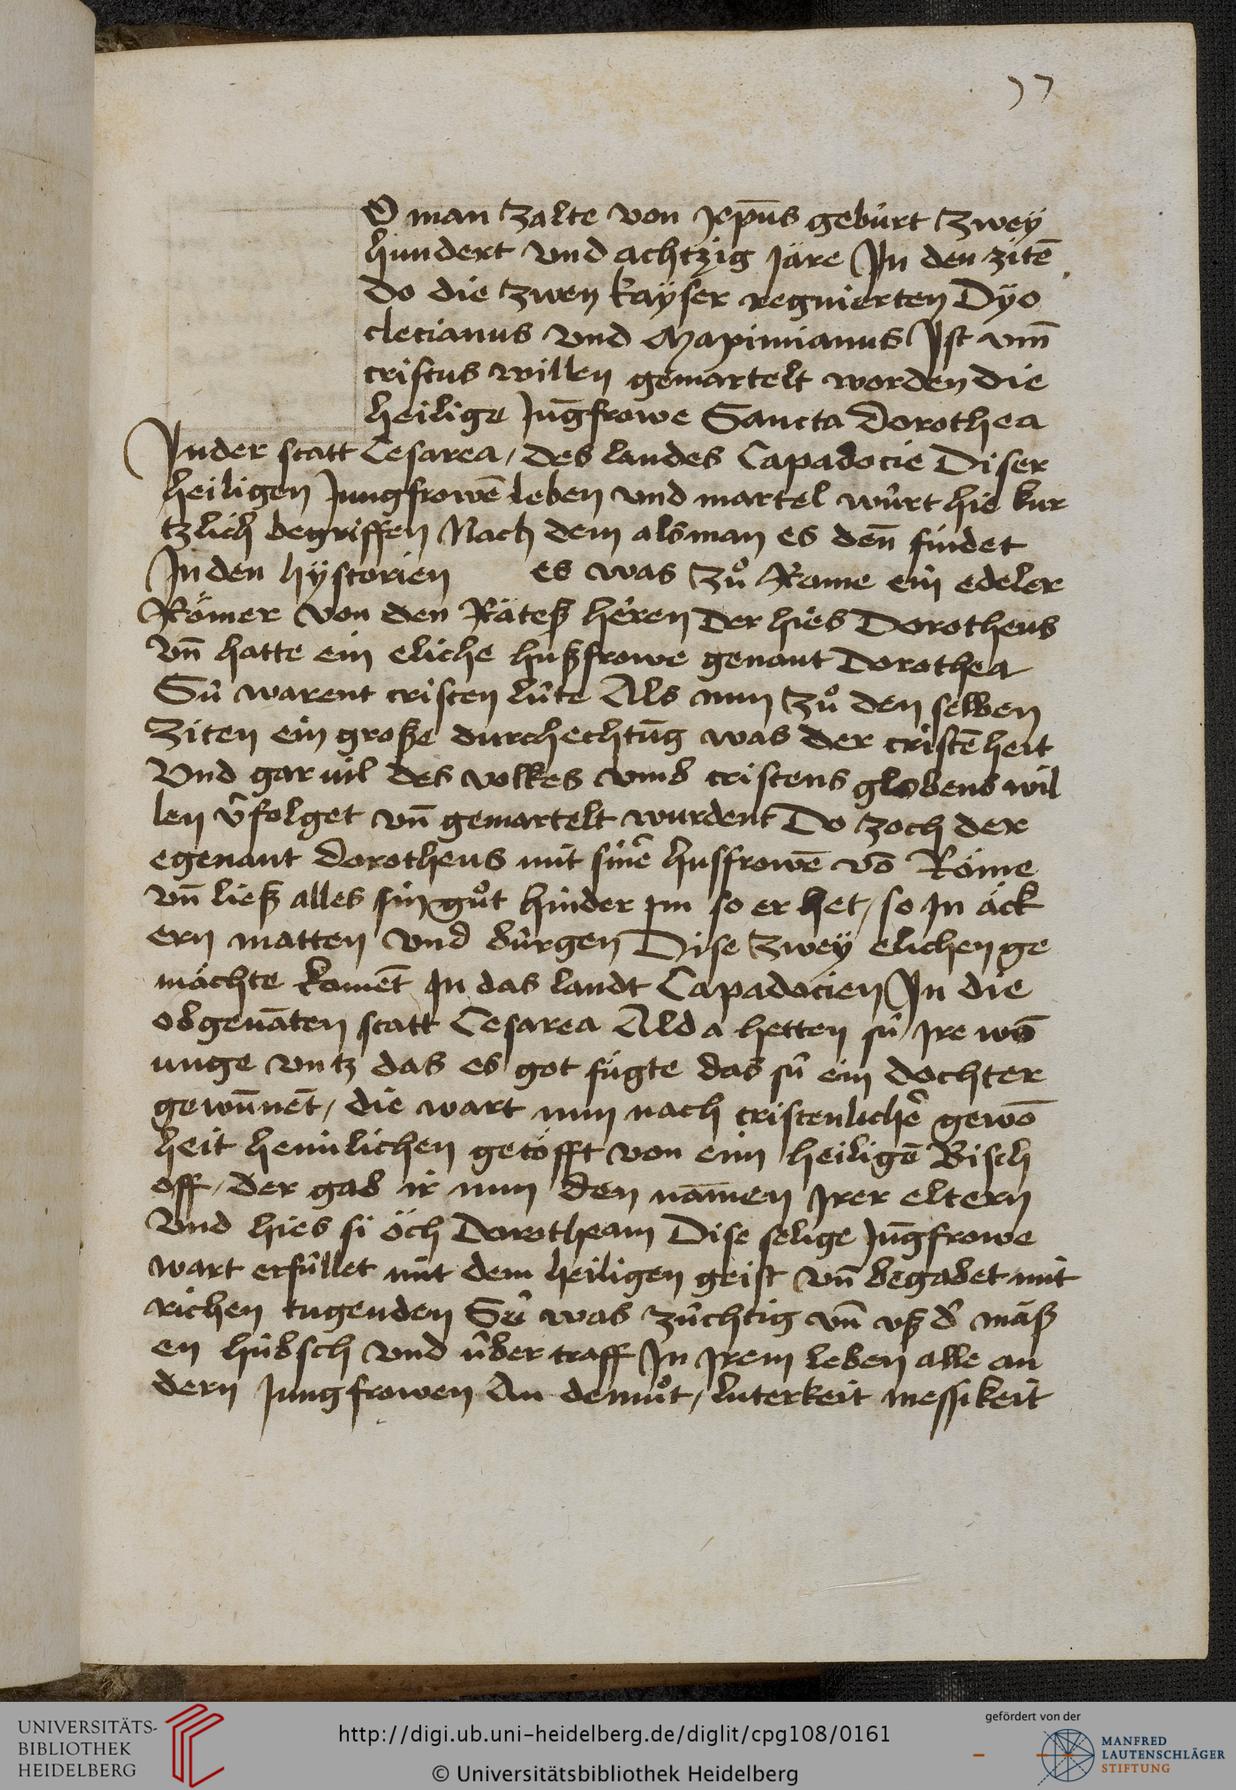 77
O man zalte von xp̄us gebúrt zwey
hundert vnd achtzig jare In den zitē
do die zwen kayser regnierten Dyo
clecianus vnd Maximianus Ist vm̄
cristus willen gemartelt worden die
heilige Jūgfrowe Sancta Dorothea
In der statt Cesarea / des landes Capadocie Diser
heiligen Jungfrowē leben vnd martel würt hie kur
tzlich begriffen Nach dem als man es den̄ findet
In den hystorien es was zuͦ Rome ein edeler
Römer von den Rätes heren Der hies Dorotheus
vn̄ hatte ein eliche hußfrowe genant Dorothea
Sú warent cristen lúte Als nun zuͦ den selben
Ziten ein große durchechtūg was der cristēheit
Vnd gar vil des volkes vmb cristens globens wil
len v̂folget vn̄ gemartelt wurdent Do zoch der
egenant dorotheus mit sinē husfrowē vō Röme
vn̄ ließ alles sin guͦt hinder im so er het / so In äck
ern matten vnd búrgen Dise zwey elichen ge
mächte komēt In das landt Capadocien In die
obgenāten statt Cesarea Alda hetten sú Ire wō
unge vntz das es got fúgte das sú ein dochter
gewūnēt / die wart nun nach cristenlichē gewō
heit heimlichen getöfft von eim heiligē Bisch
off / der gab ir nun den nāmen Irer eltern
Vnd hies si öch Dorotheam Dise selige Jūgfrowe
wart erfúllet mit dem heiligen geist vn̄ begabet mit
richen tugenden Sú was zúchtig vn̄ vß d̂ mäß
en húbsch vnd úber traff In Irem leben alle an
dern Jungfrowen An demuͦt / luterkeit messikeit
UNIVERSITÄTS-
BIBLIOTHEK
HEIDELBERG
http://digi.ub.uni-heidelberg.de/diglit/cpg108/0161
© Universitätsbibliothek Heidelberg
gefördert von der
MANFRED
LAUTENSCHLÄGER
STIFTUNG